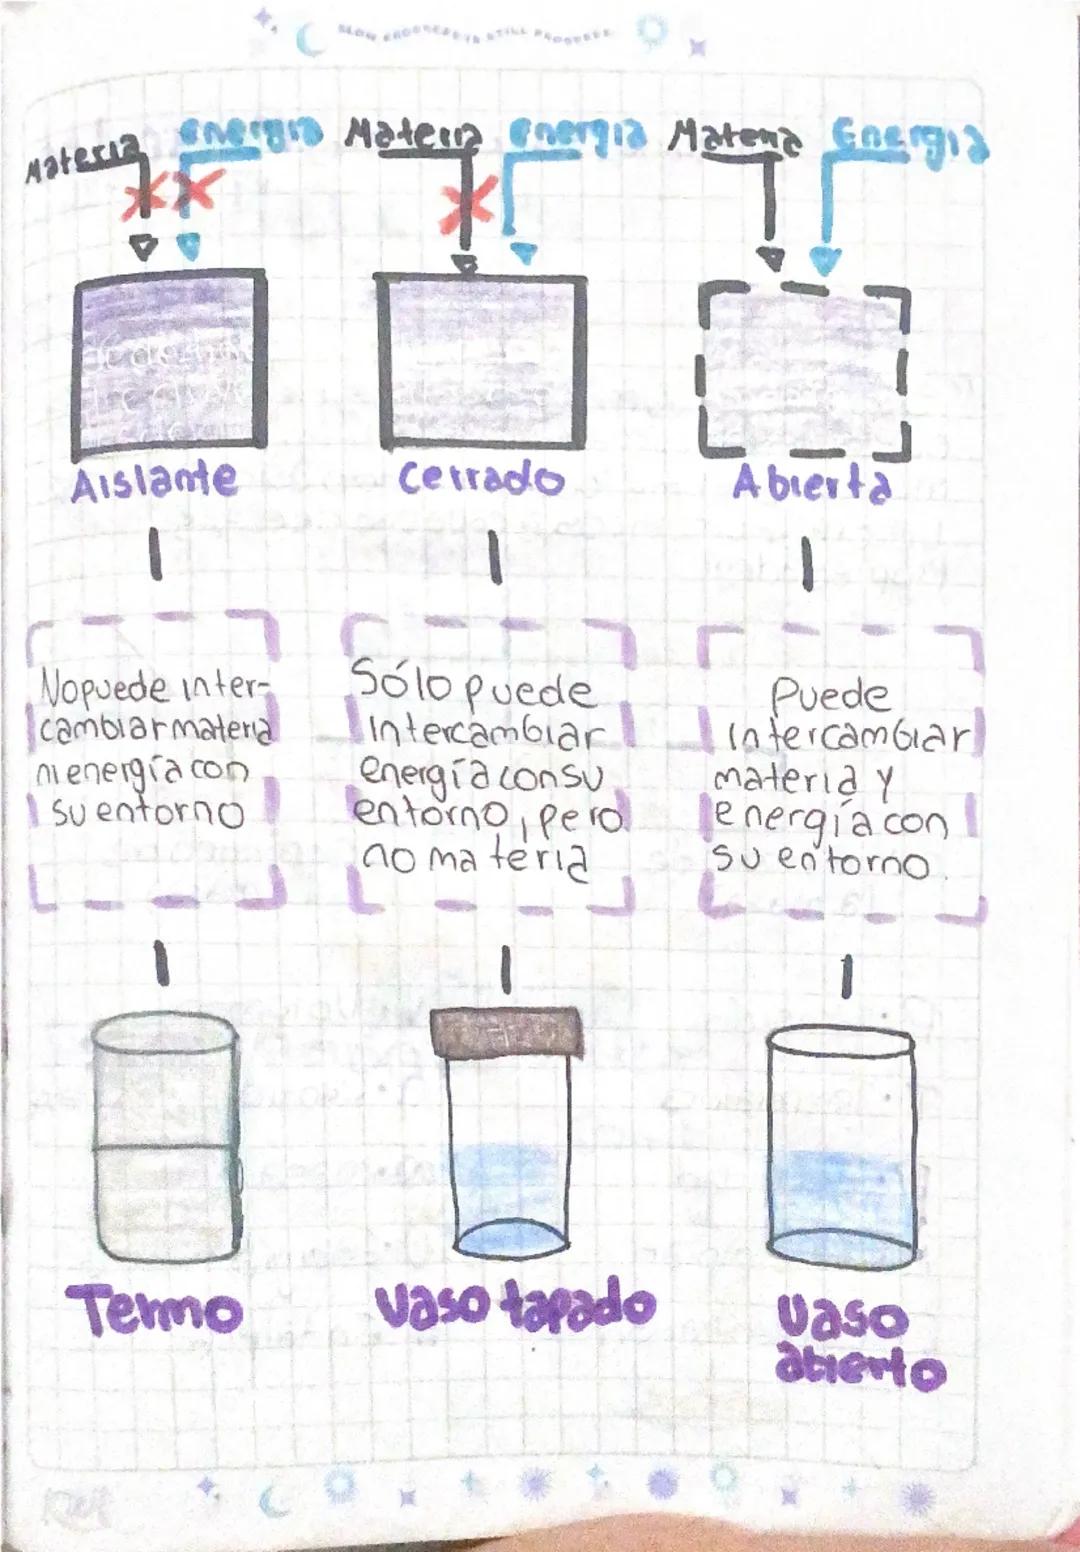 SLOW PROGRESS IS STILL PROGRESS
Materia energia Materia energia Materia Energia
Aislante Cerrado Abierta
No puede inter-
cambiar materia
ni energía con
su entorno
Sólo puede
Intercambiar
energía con su
entorno, pero
no materia
Puede
intercambiar
materia y
energía con
su entorno.
Termo Vaso tapado Vaso
abierto